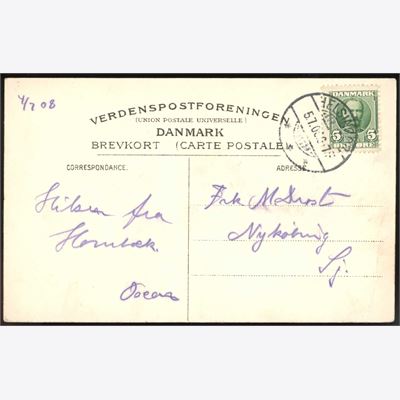 4/7 08
VERDENSPOSTFORENINGEN
(UNION POSTALE UNIVERSELLE)
DANMARK
BREVKORT (CARTE POSTALE)
DANMARK
5 5
ØRE
CORRESPONDANCE.
ADRESSE.
Hilsen fra
Hornbæk.
Oscar
Frk M Drost
Nykøbing
Sj.